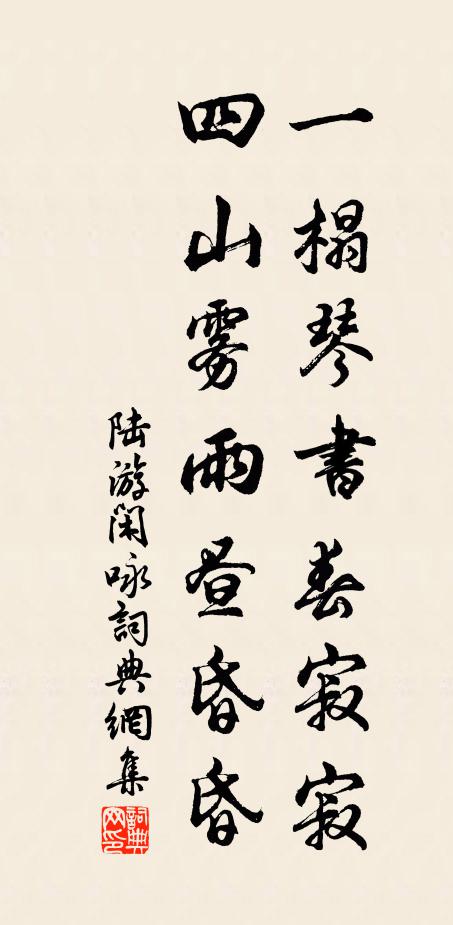 一榻琴書春寂寂
四山雾雨昼昏昏
陆游闲咏詞典網集
詞典网印